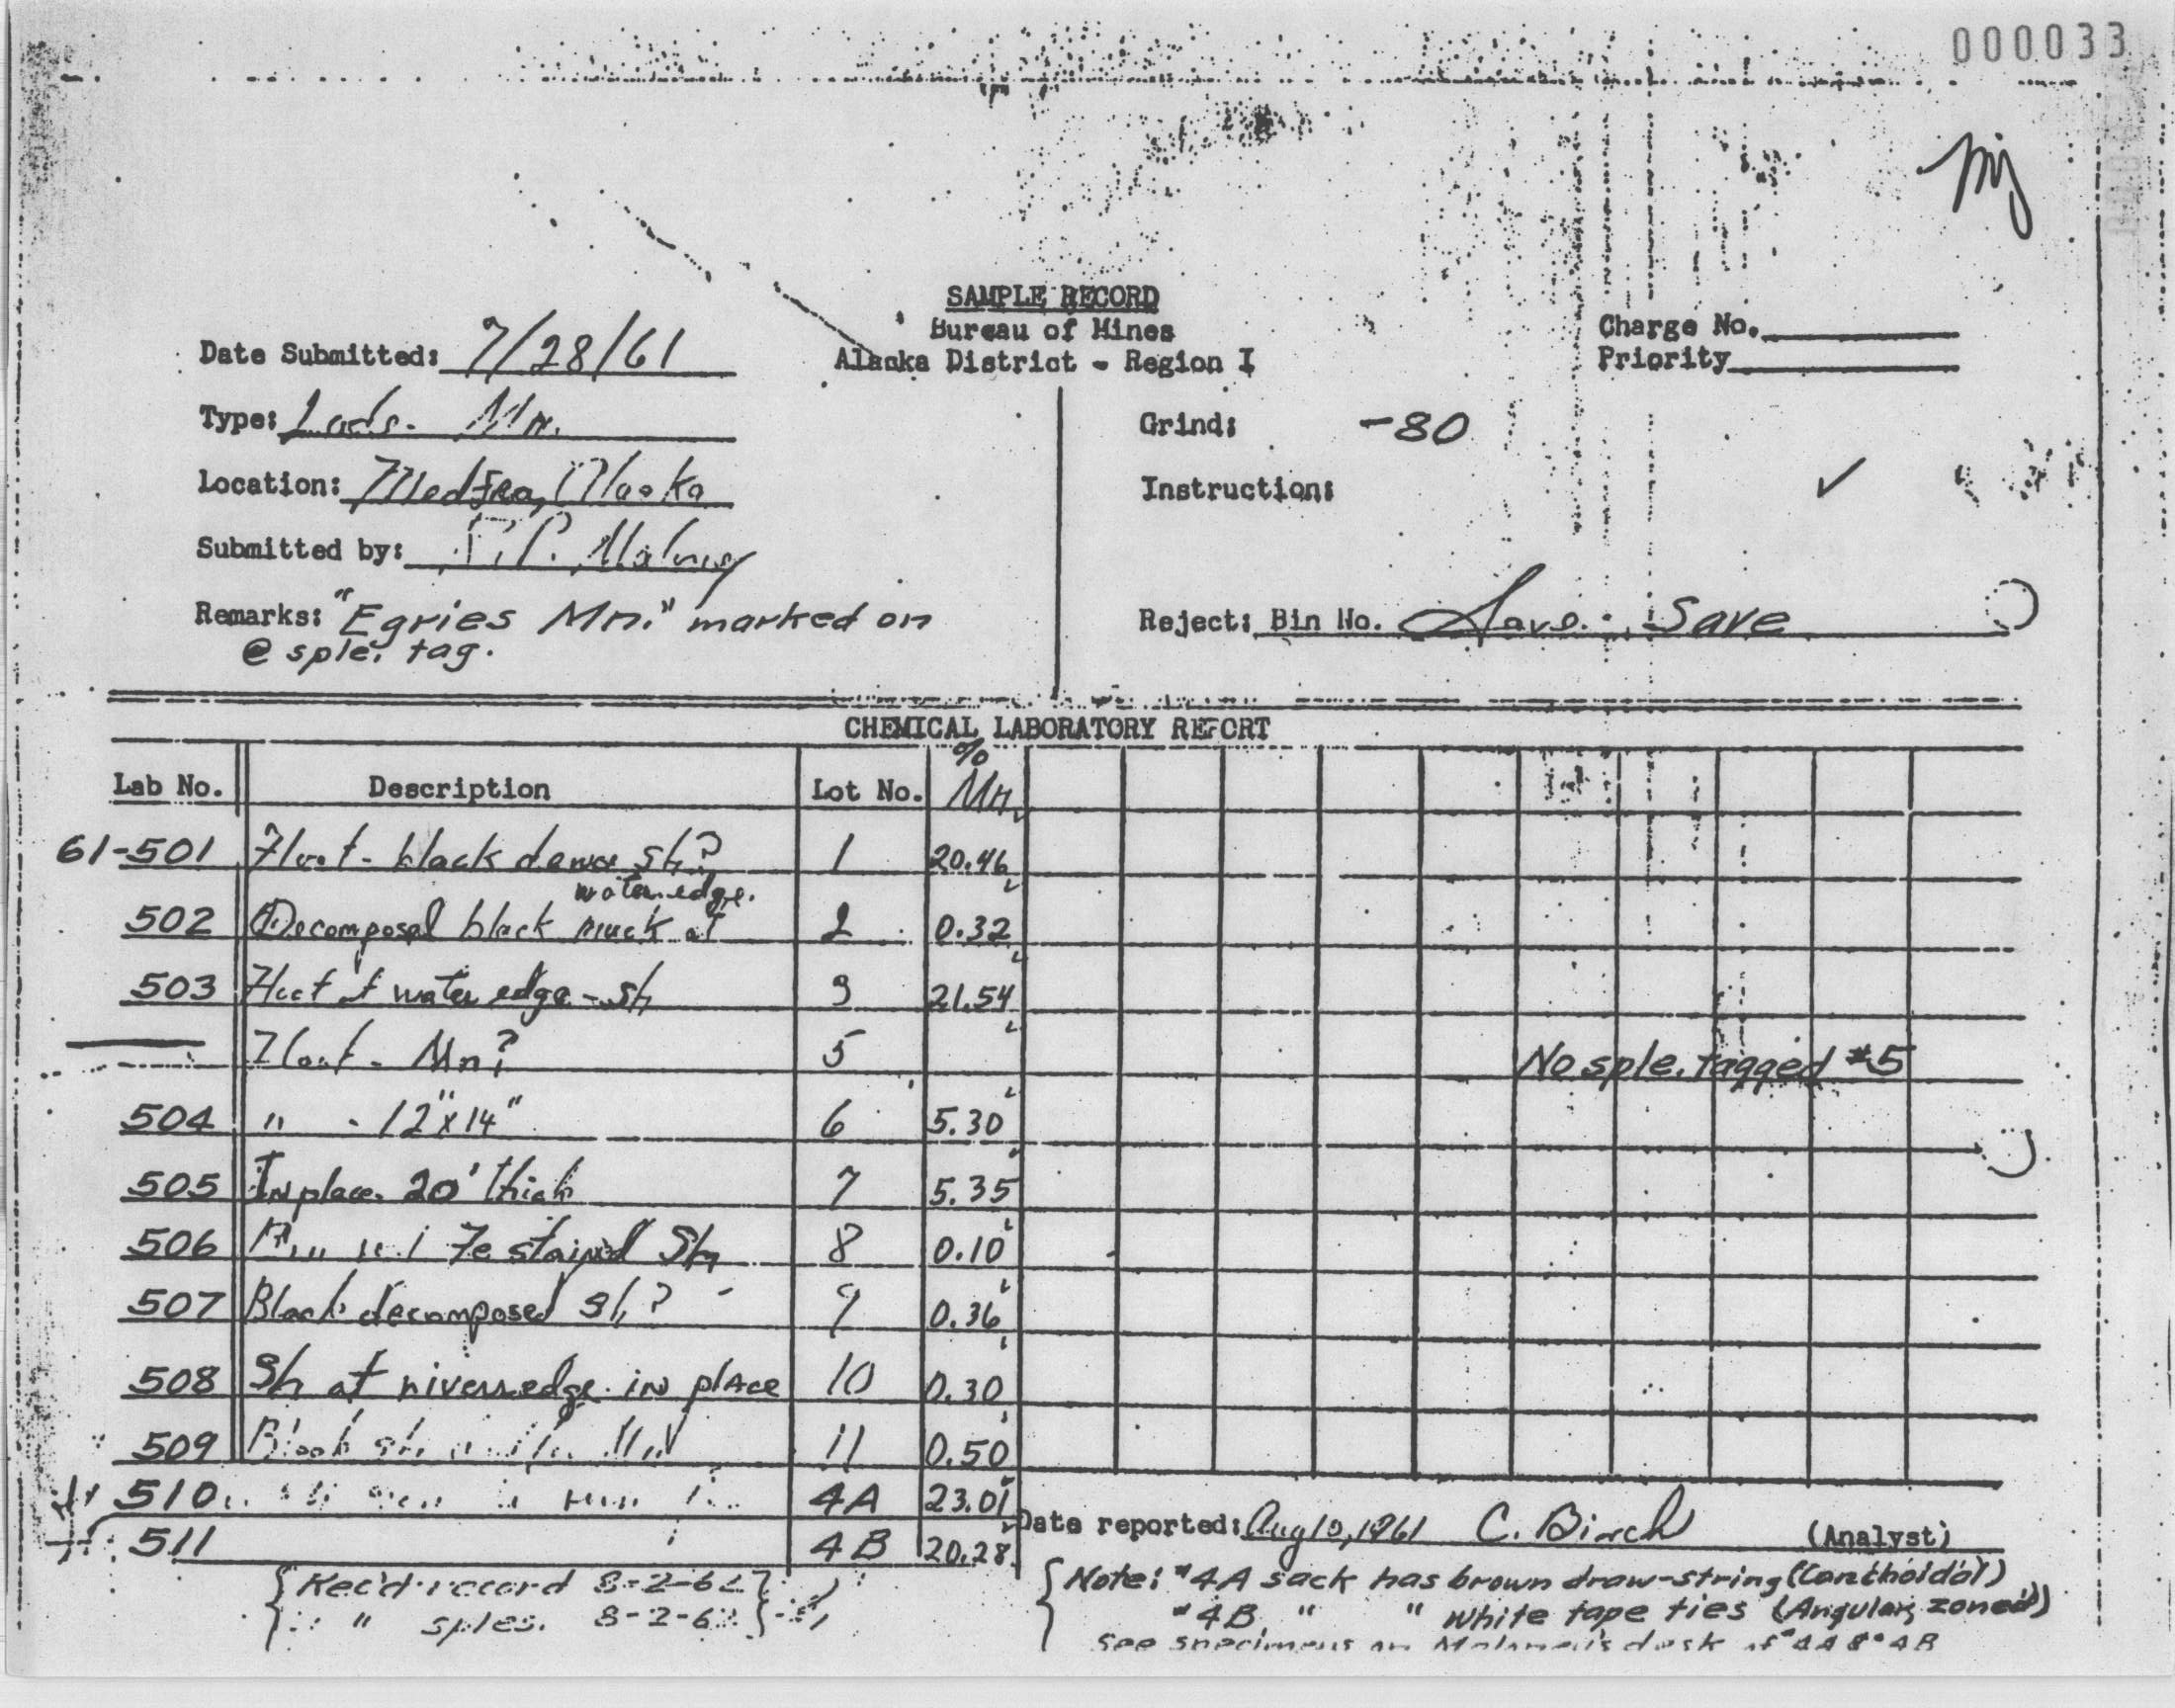 000033
SAMPLE RECORD
Bureau of Mines
Alaska District - Region I
Charge No.
Priority
Date Submitted: 7/28/61
Type: Lode - Mn.
Location: Medfra, Alaska
Submitted by: Maloney
Remarks: "Egries Mn." marked on
@ sple. tag.
Grind: -80
Instruction: ✓
Reject: Bin No. Save. Save
CHEMICAL LABORATORY REPORT
Lab No. Description Lot No. % Mn.
61-501 Float - black dense sh? 1 20.46
water edge.
502 Decomposed black muck at 2 0.32
503 Float at water edge - sh 3 21.54
Float - Mn? 5 No sple. tagged #5
504 " - 12"x14" 6 5.30
505 In place 20' thick 7 5.35
506 Fe stained Sh 8 0.10
507 Black decomposed sh? 9 0.36
508 Sh at rivers edge in place 10 0.30
509 Black sh 11 0.50
510 4A 23.01
511 4B 20.28
Date reported: Aug 10, 1961 C. Birch (Analyst)
{Rec'd record 8-2-62}
" sples. 8-2-62}
{Note: #4A sack has brown draw-string (Conchoidal)
#4B " " white tape ties (Angular, zoned)
See specimens on Maloney's desk of #4A & #4B